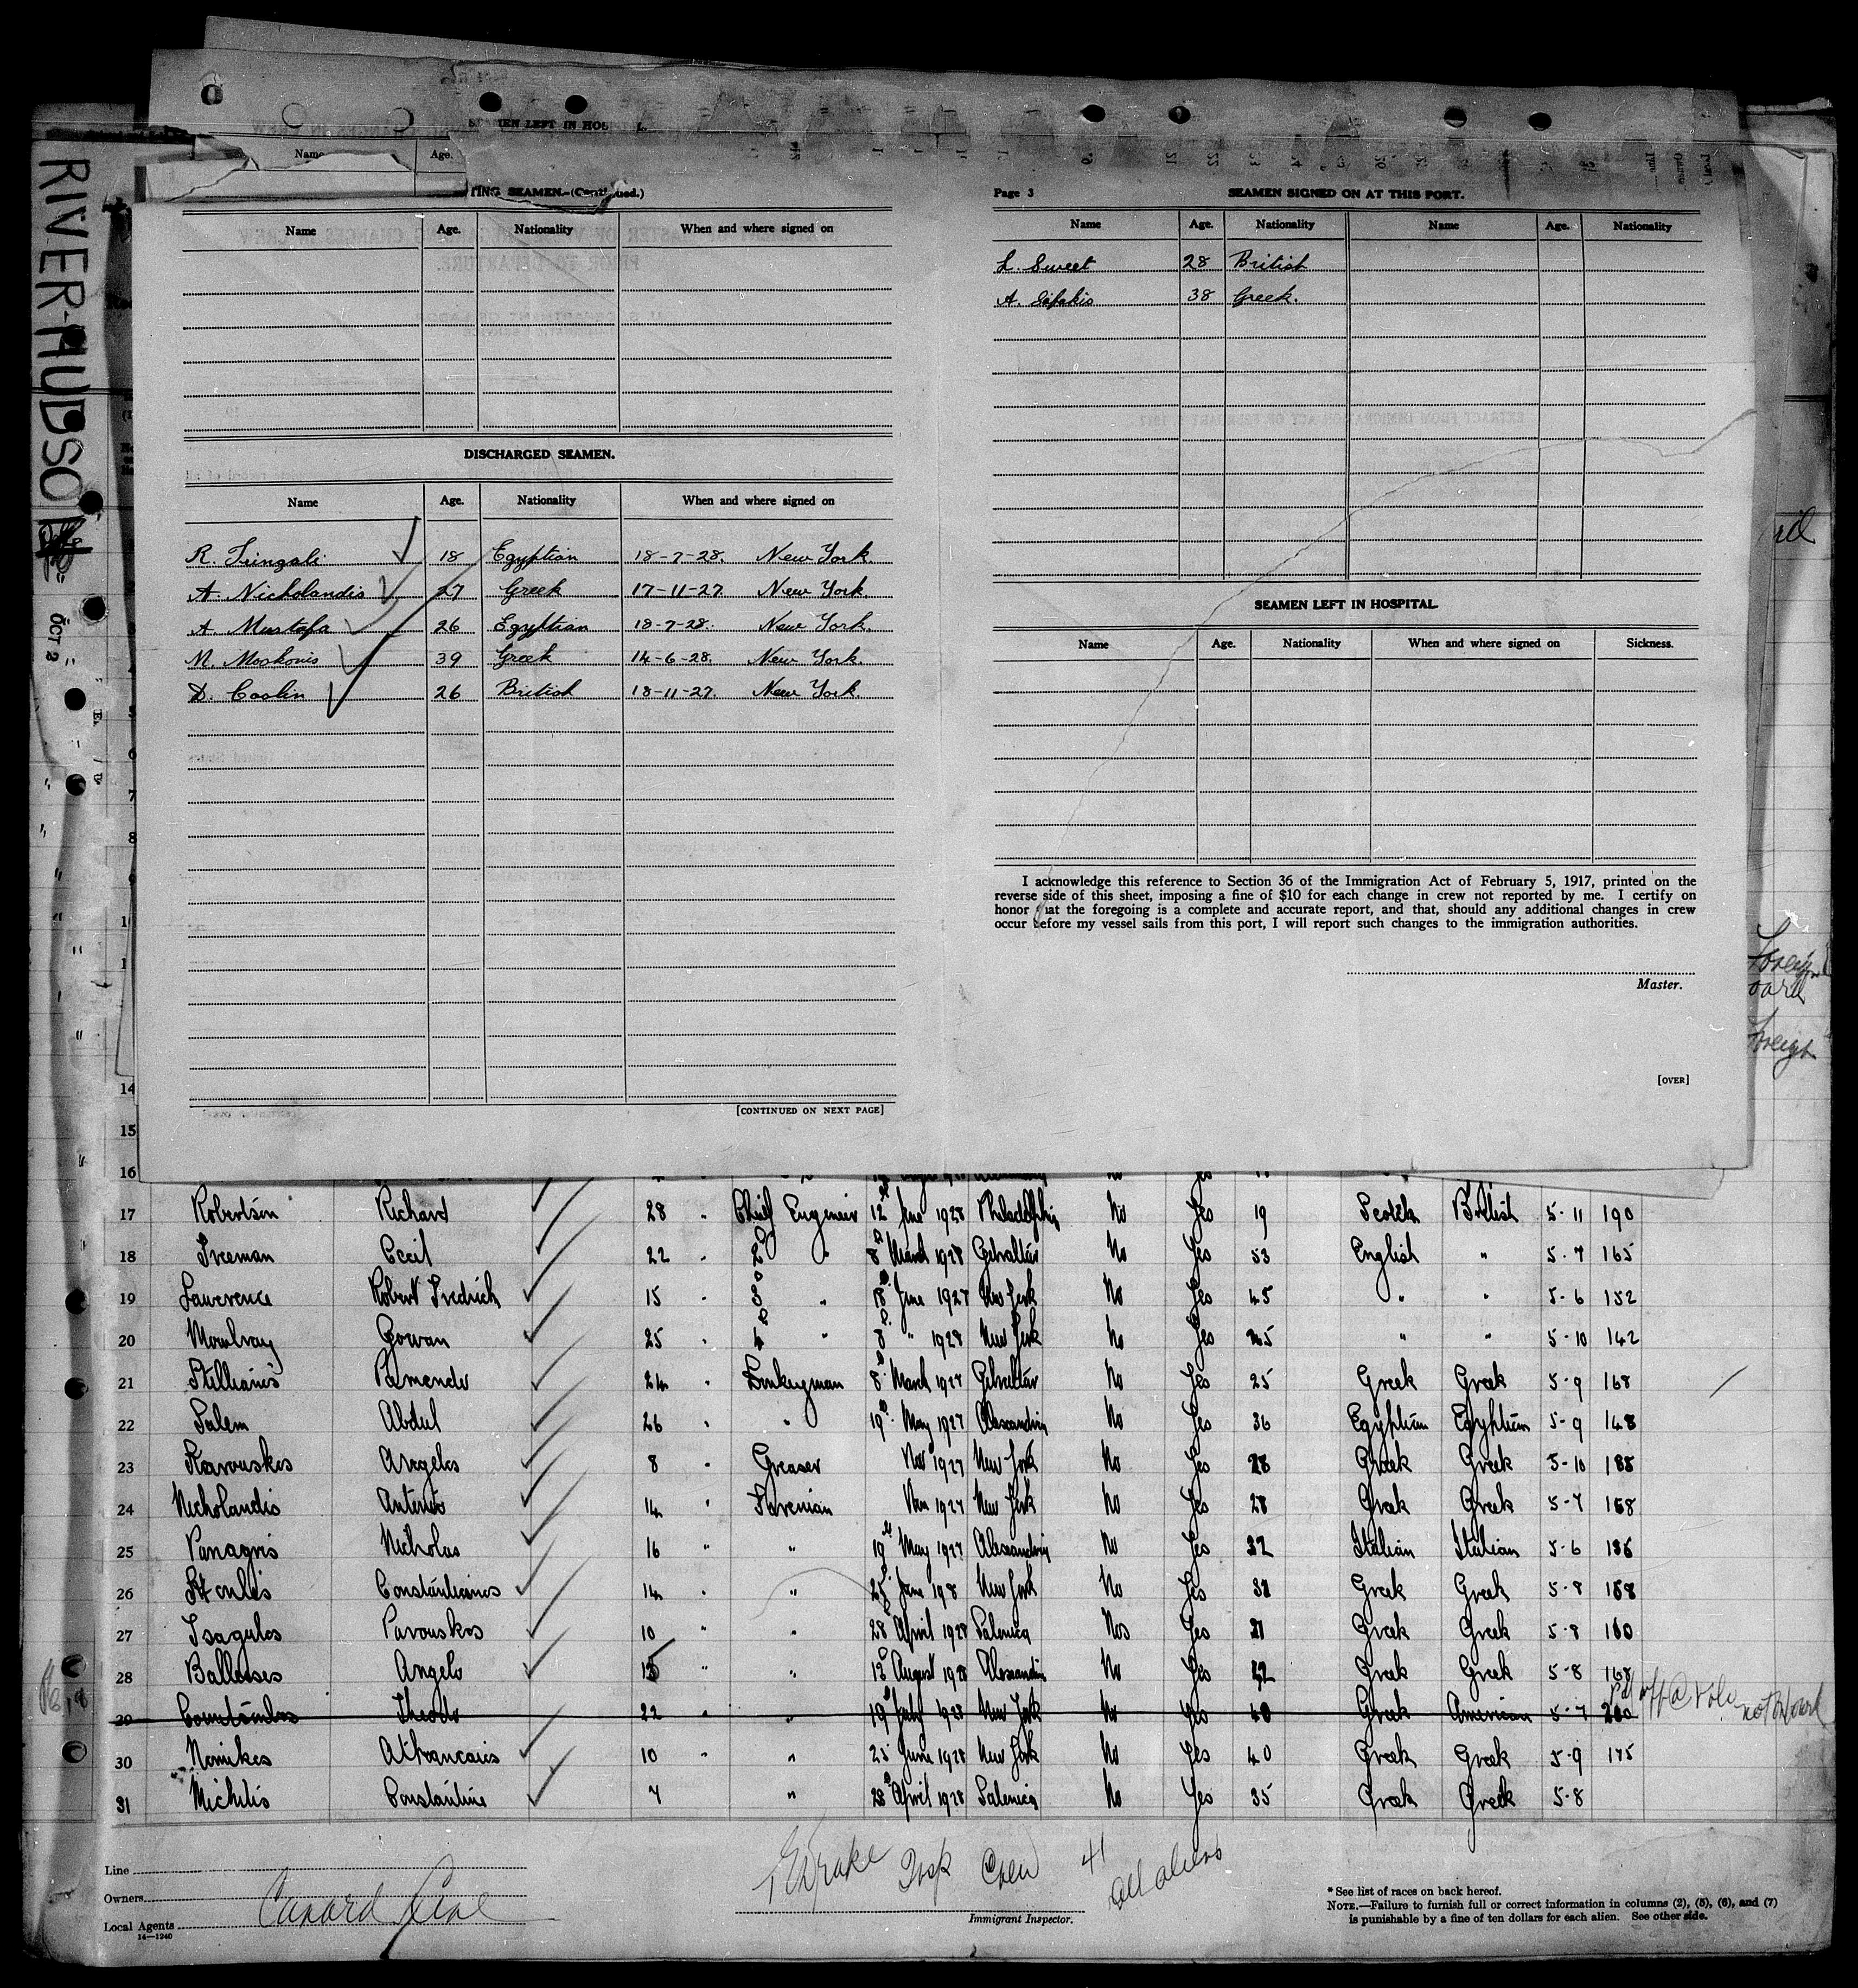 SEAMEN LEFT IN HOS L.
Name Age.
RIVER-HUDSO
OCT 2
TING SEAMEN.—(Continued.)
Name Age. Nationality When and where signed on
DISCHARGED SEAMEN.
Name Age. Nationality When and where signed on
R. Tringali 18 Egyptian 18-7-28. New York.
A. Nicholandis 27 Greek 17-11-27. New York.
A. Mustafa 26 Egyptian 18-7-28. New York.
M. Moskovis 39 Greek 14-6-28. New York.
D. Coolin 26 British 18-11-27. New York.
[CONTINUED ON NEXT PAGE]
Page 3 SEAMEN SIGNED ON AT THIS PORT.
Name Age. Nationality Name Age. Nationality
L. Sweet 28 British
A. Sifakis 38 Greek.
SEAMEN LEFT IN HOSPITAL.
Name Age. Nationality When and where signed on Sickness.
I acknowledge this reference to Section 36 of the Immigration Act of February 5, 1917, printed on the
reverse side of this sheet, imposing a fine of $10 for each change in crew not reported by me. I certify on
honor that the foregoing is a complete and accurate report, and that, should any additional changes in crew
occur before my vessel sails from this port, I will report such changes to the immigration authorities.
Master.
[OVER]
Foreign
Foreign
14
15
16
17 Robertson Richard 28 " Chief Engineer 12 June 1928 Philadelphia No Yes 19 Scotch British 5-11 190
18 Freeman Cecil 22 " 2 " 8 March 1928 Gibraltar No Yes 53 English " 5-7 165
19 Lawerence Robert Fredrich 15 " 3 " 18 June 1927 New York No Yes 45 " " 5-6 152
20 Gowan 25 " 4 " 8 " 1928 New York No Yes " " 5-10 142
21 Stellianis 24 " Donkeyman 8 March 1928 Gibraltar No Yes 25 Greek Greek 5-9 168
22 Salem Abdul 26 " " 19 May 1927 Alexandria No Yes 36 Egyptian Egyptian 5-9 148
23 Karouskos Angelos 8 " Greaser Nov 1927 New York No Yes 28 Greek Greek 5-10 188
24 Nicholandis Antonio 14 " Fireman Nov 1927 New York No Yes 28 Greek Greek 5-7 168
25 Panagris Nicholas 16 " " 19 May 1927 Alexandria No Yes 32 Italian Italian 5-6
26 Constantinos 14 " " 25 June New York No Yes Greek Greek 5-8
27 Tsagulos Parouskos 10 " " 28 April 1928 Salonica Yes Greek Greek 5-8 160
28 Angelo 15 " " 18 August 1928 Alexandria No Yes Greek Greek 5-8 168
29 Theodor 22 " " 19 July 1928 New York No Yes 40 Greek American 5-7 not aboard
30 Nomikos 10 " " 25 June 1928 New York No Yes 40 Greek Greek 5-9 175
31 Michilis Constantine 7 " 28 April 1928 Salonica No Yes 35 Greek Greek 5-8
Line
Owners
Local Agents Cunard Line
14—1240
Drake Insp Crew 41
all aliens
Immigrant Inspector.
* See list of races on back hereof.
NOTE.—Failure to furnish full or correct information in columns (2), (5), (6), and (7)
is punishable by a fine of ten dollars for each alien. See other side.